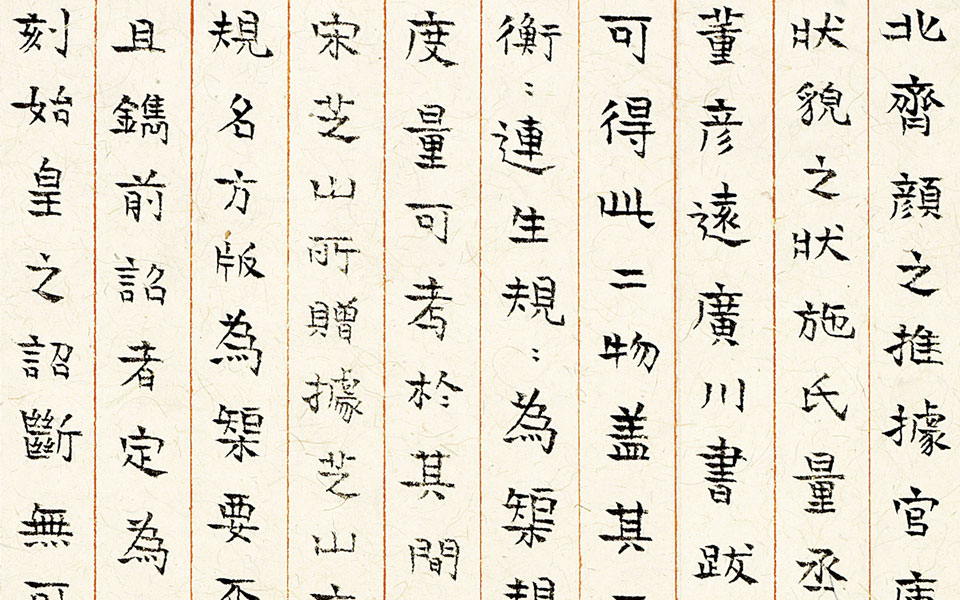 北齊顏之推據官
狀貌之狀施氏量丞
董彦遠廣川書跋
可得此二物盖其
衡：連生規：為榘規
度量可考於其間
宋芝山所贈據芝山
規名方版為榘要否
且鐫前詔者定為
刻始皇之詔斷無可